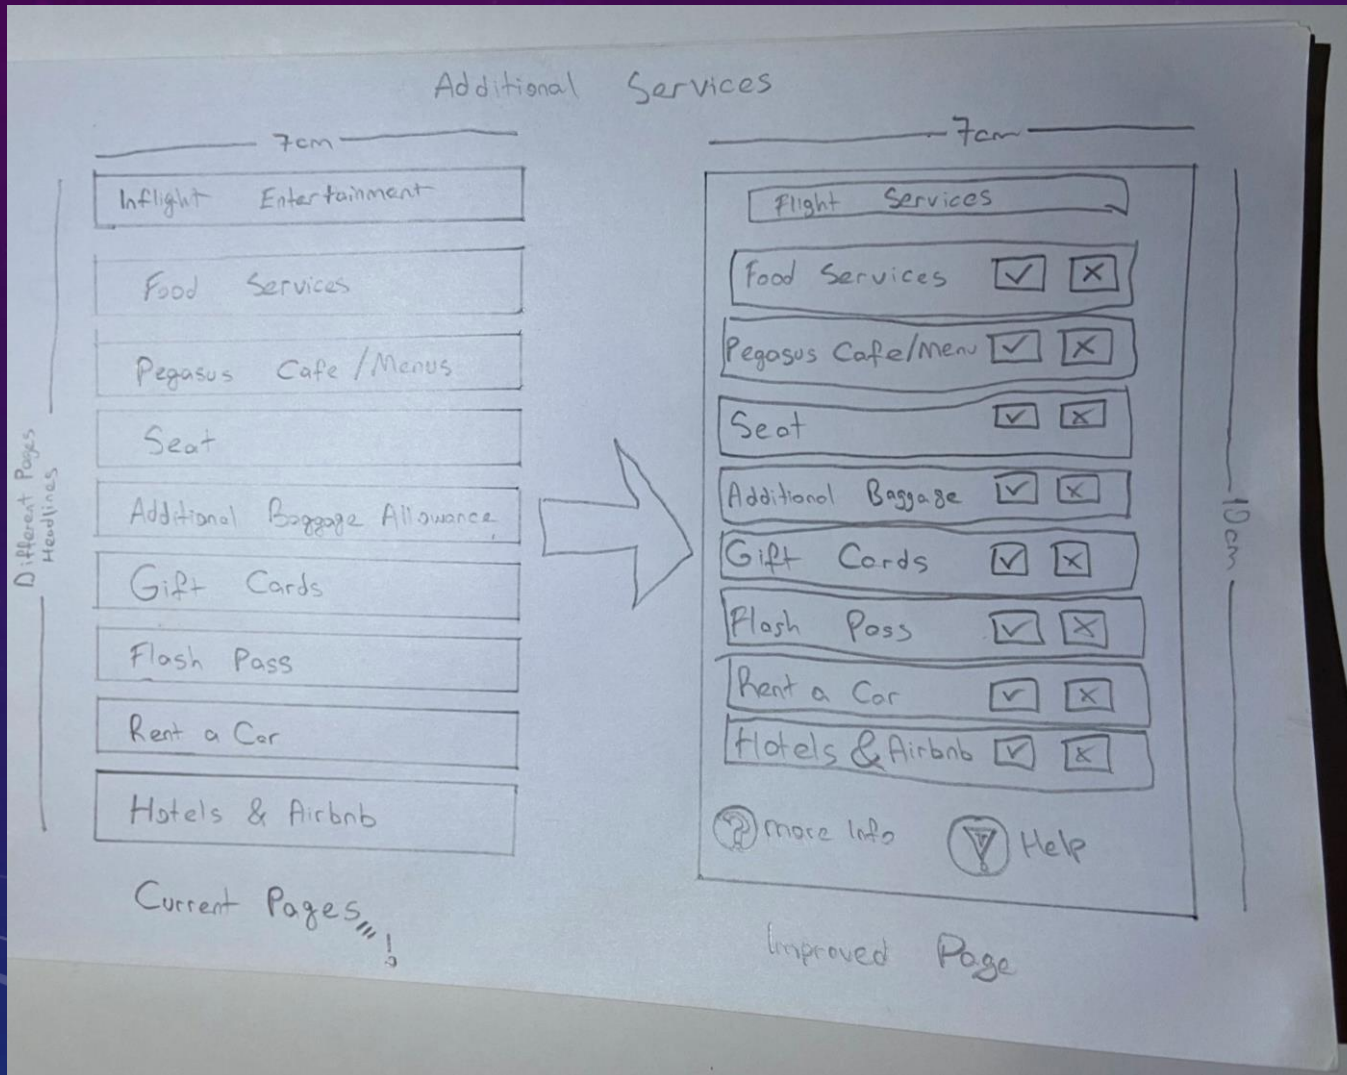 Additional Services
7cm
Inflight Entertainment
Food Services
Pegasus Cafe/Menus
Seat
Additional Baggage Allowance
Gift Cards
Flash Pass
Rent a Car
Hotels & Airbnb
Different Pages
Headlines
Current Pages,,, !
7cm
Flight Services
Food Services
Pegasus Cafe/Menu
Seat
Additional Baggage
Gift Cards
Flash Pass
Rent a Car
Hotels & Airbnb
? more Info
Help
10cm
Improved Page